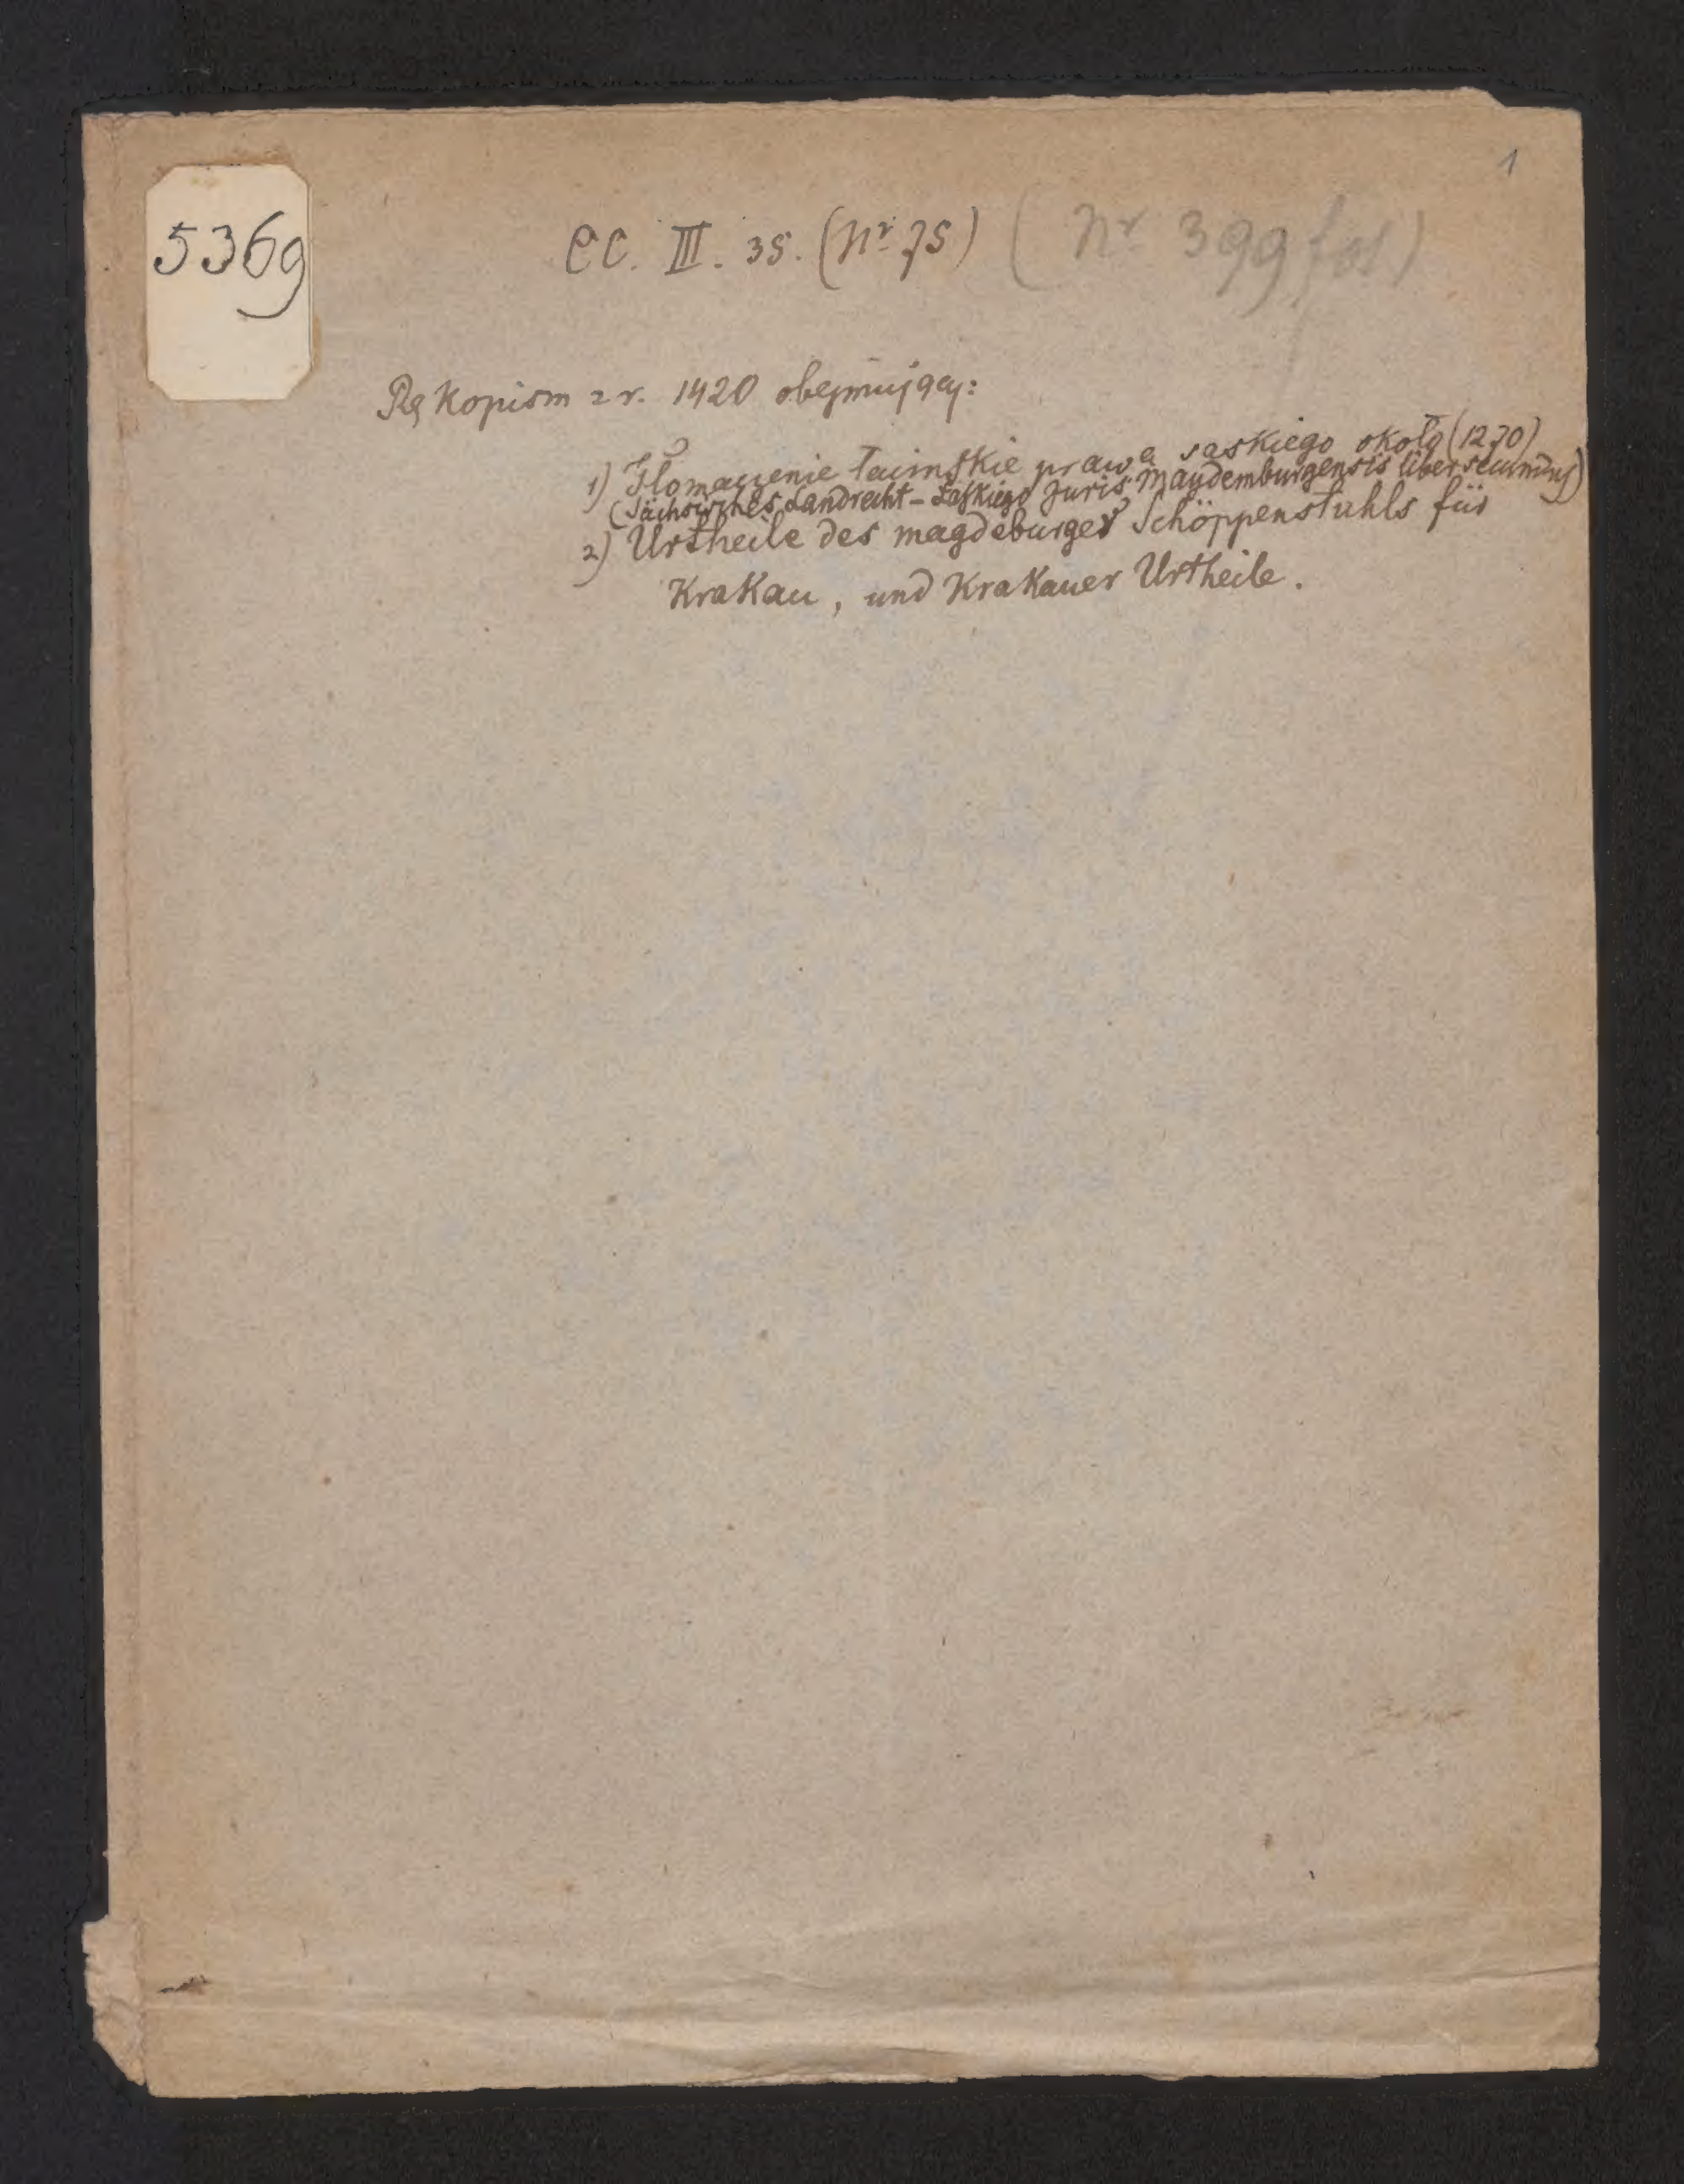 1
5369
CC. III. 35. (Nr 75) (Nr 399 fol)
Rękopism z r. 1420 obejmujący:
1) Tłomaczenie łacińskie prawa saskiego około (1270)
(Sächsisches Landrecht - Łaskiego Juris Maydemburgensis liber secundus)
2) Urtheile des magdeburger Schöppenstuhls für
Krakau, und Krakauer Urtheile.